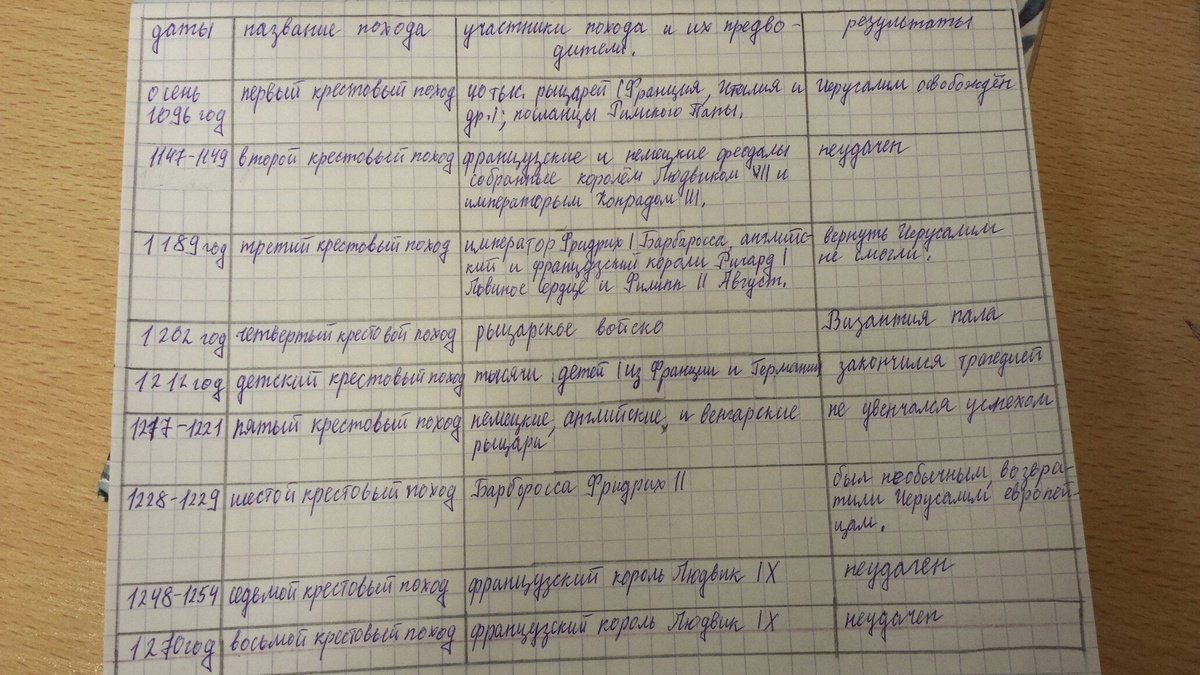 даты название похода участники похода и их предво- результаты
дители.
осень первый крестовый поход 40 тыс. рыцарей (Франция, Италия и Иерусалим освобождён
1096 год др.); посланцы Римского Папы.
1147-1149 второй крестовый поход французские и немецкие феодалы неудачен
собранные королём Людвиком VII и
императорым Конрадом III.
1189 год третий крестовый поход император Фридрих I Барбаросса, английс- вернуть Иерусалим
кий и французский короли Ричард I не смогли.
Львиное Сердце и Филипп II Август.
1202 год четвертый крестовой поход рыцарское войско Византия пала
1212 год детский крестовый поход тысячи детей (из Франции и Германии закончился трагедией
1217-1221 пятый крестовый поход немецкие, английские, и венгарские не увенчался успехом
рыцари
1228-1229 шестой крестовый поход Барбаросса Фридрих II был необычным, возвра-
тили Иерусалим европей-
цам.
1248-1254 седьмой крестовый поход французский король Людвик IX неудачен
1270 год восьмой крестовый поход французский король Людвик IX неудачен